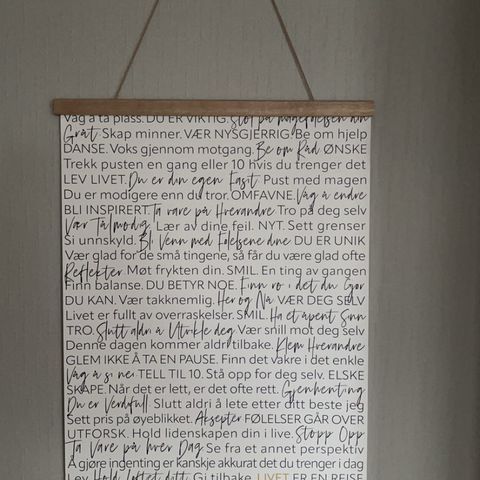 Våg å ta plass. DU ER VIKTIG. Stol på magefølelsen din
Gråt Skap minner. VÆR NYSGJERRIG. Be om hjelp
DANSE. Voks gjennom motgang. Be om Råd ØNSKE
Trekk pusten en gang eller 10 hvis du trenger det
LEV LIVET. Du er din egen Fasit Pust med magen
Du er modigere enn du tror. OMFAVNE. Våg å endre
BLI INSPIRERT. Ta vare på Hverandre Tro på deg selv
Vær Tålmodig. Lær av dine feil. NYT. Sett grenser
Si unnskyld. Bli Venn med Følelsene dine DU ER UNIK
Vær glad for de små tingene, så får du være glad ofte
Reflekter Møt frykten din. SMIL. En ting av gangen
Finn balanse. DU BETYR NOE. Finn ro i det du Gjør
DU KAN. Vær takknemlig. Her og Nå VÆR DEG SELV
Livet er fullt av overraskelser. SMIL. Ha et åpent Sinn
TRO. Slutt aldri å Utvikle deg Vær snill mot deg selv
Denne dagen kommer aldri tilbake. Klem Hverandre
GLEM IKKE Å TA EN PAUSE. Finn det vakre i det enkle
Våg å si nei TELL TIL 10. Stå opp for deg selv. ELSKE
SKAPE. Når det er lett, er det ofte rett. Gjenhenting
Du er Verdifull Slutt aldri å lete etter ditt beste jeg
Sett pris på øyeblikket. Aksepter FØLELSER GÅR OVER
UTFORSK. Hold lidenskapen din i live. Stopp Opp
Ta Vare på hver Dag Se fra et annet perspektiv
Å gjøre ingenting er kanskje akkurat det du trenger i dag
Lev Hold løftet ditt Gi tilbake. LIVET ER EN REISE